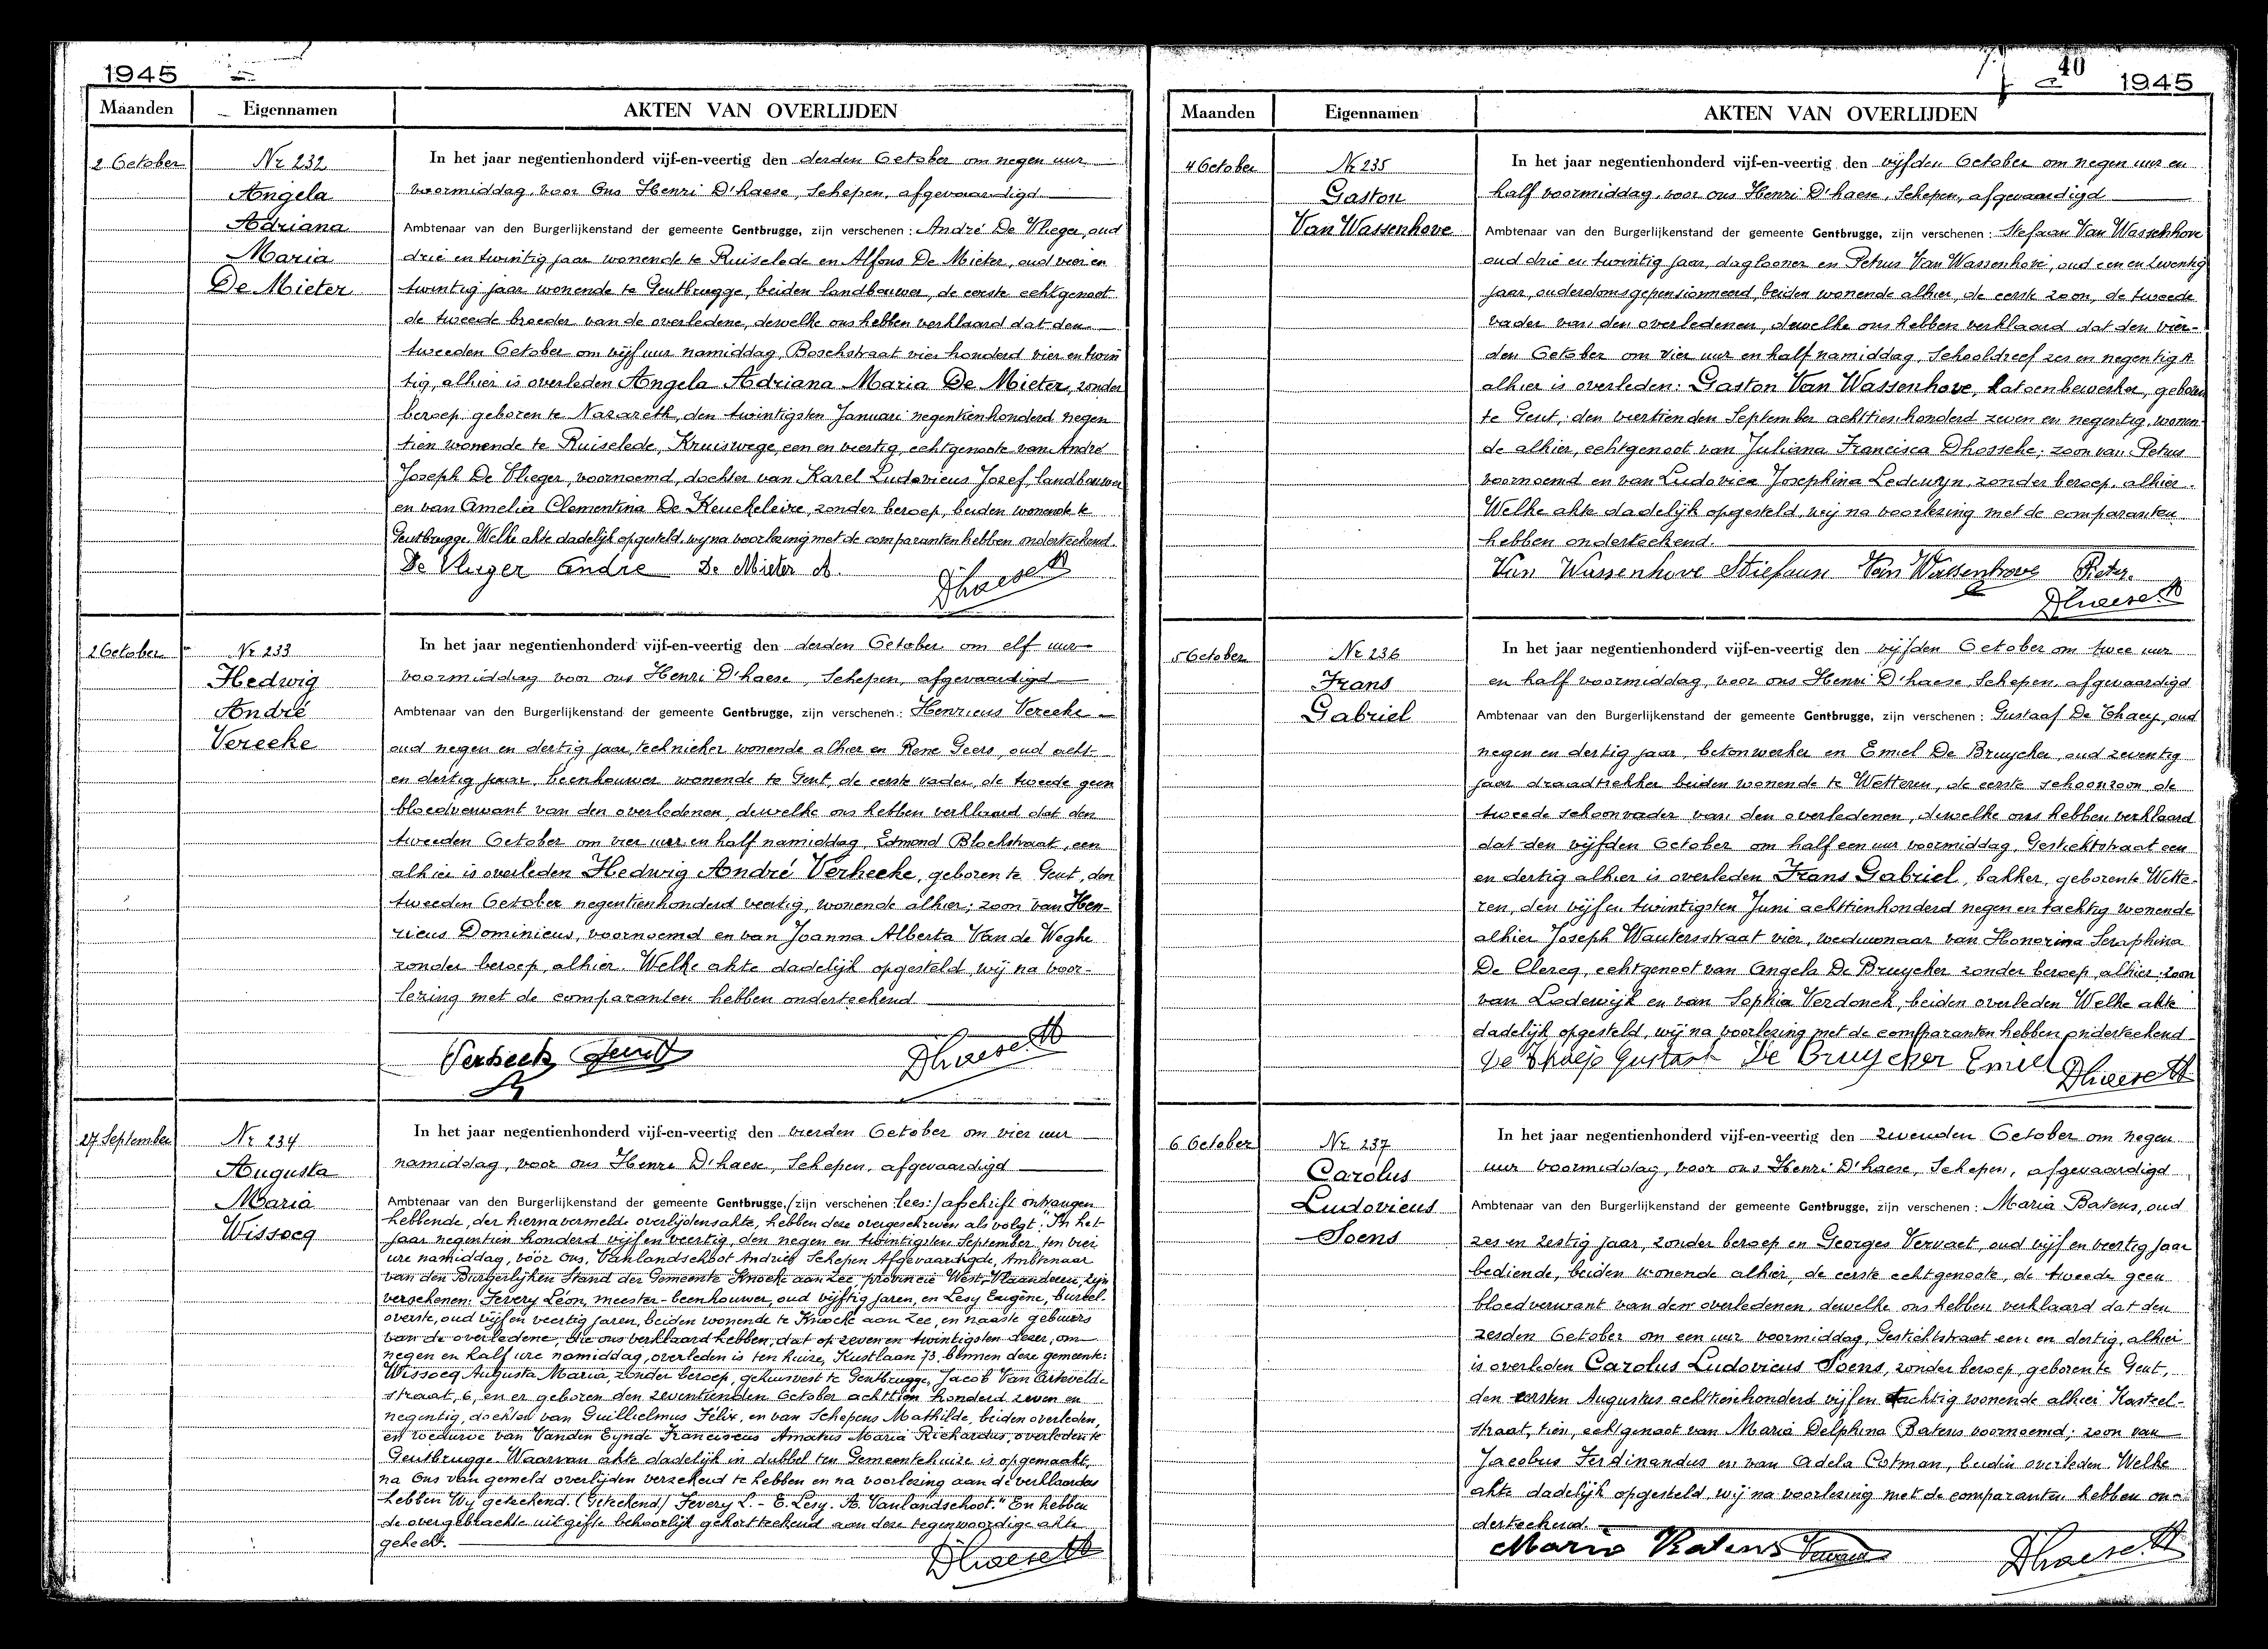 1945
Maanden
Eigennamen
AKTEN VAN OVERLIJDEN
2 October
Nr 232
Angela
Adriana
Maria
De Mieter
In het jaar negentienhonderd vijf-en-veertig den derden October om negen uur
voormiddag, voor Ons Henri D'haese, Schepen, afgevaardigd
Ambtenaar van den Burgerlijkenstand der gemeente Gentbrugge, zijn verschenen: André De Vlieger, oud
drie en twintig jaar wonende te Ruiselede en Alfons De Mieter, oud vier en
twintig jaar wonende te Gentbrugge, beiden landbouwer, de eerste echtgenoot
de tweede broeder van de overledene, dewelke ons hebben verklaard dat den
tweeden October om vijf uur namiddag, Boschstraat vier honderd vier en twin
tig, alhier is overleden Angela Adriana Maria De Mieter, zonder
beroep geboren te Nazareth, den twintigsten Januari negentienhonderd negen
tien wonende te Ruiselede, Kruiswege, een en veertig, echtgenoote van André
Joseph De Vlieger, voornoemd, dochter van Karel Ludovicus Josef, landbouwer
en van Amelia Clementina De Keuckeleire, zonder beroep, beiden wonende te
Gentbrugge. Welke akte dadelijk opgesteld, wij na voorlezing met de comparanten hebben onderteekend.
De Vlieger André De Mieter A. Dhaese H
2 October
Nr 233
Hedwig
André
Vereeke
In het jaar negentienhonderd vijf-en-veertig den derden October om elf uur
voormiddag voor ons Henri D'haese, Schepen, afgevaardigd
Ambtenaar van den Burgerlijkenstand der gemeente Gentbrugge, zijn verschenen: Henricus Vereeke
oud negen en dertig jaar, technieker wonende alhier en Rene Geers, oud acht
en dertig jaar, beenhouwer wonende te Gent, de eerste vader, de tweede geen
bloedverwant van den overledenen, dewelke ons hebben verklaard dat den
tweeden October om vier uur en half namiddag, Edmond Blockstraat, een
alhier is overleden Hedwig André Verheeke, geboren te Gent, den
tweeden October negentienhonderd veertig, wonende alhier; zoon van Hen-
ricus Dominicus, voornoemd en van Joanna Alberta Van de Weghe
zonder beroep, alhier. Welke akte dadelijk opgesteld, wij na voor-
lezing met de comparanten hebben onderteekend
Dhaese H
27 September
Nr 234
Augusta
Maria
Wissocq
In het jaar negentienhonderd vijf-en-veertig den vierden October om vier uur
namiddag, voor ons Henri D'haese, Schepen, afgevaardigd
Ambtenaar van den Burgerlijkenstand der gemeente Gentbrugge, /zijn verschenen: lees:/ afschrift ontvangen
hebbende, der hiernavermelde overlijdensakte, hebben deze overgeschreven als volgt: "In het
jaar negentien honderd vijf en veertig, den negen en twintigsten September, ten vier
ure namiddag, vóór Ons, Vanlandschoot Andries Schepen Afgevaardigde, Ambtenaar
van den Burgerlijken Stand der Gemeente Knocke aan Zee, provincie West-Vlaanderen, zijn
verschenen: Fevery Léon, meester-beenhouwer, oud vijftig jaren, en Lesy Eugène, bureel-
overste, oud vijf en veertig jaren, beiden wonende te Knocke aan Zee, en naaste gebuurs
van de overledene, die ons verklaard hebben, dat op zeven en twintigsten dezer, om
negen en half ure namiddag, overleden is ten huize, Kustlaan 73, binnen deze gemeente:
Wissocq Augusta Maria, zonder beroep, gehuisvest te Gentbrugge, Jacob Van Artevelde
straat, 6, en er geboren den zeventienden October achttien honderd zeven en
negentig, dochter van Guillielmus Félix, en van Schepens Mathilde, beiden overleden,
en weduwe van Vanden Eynde Franciscus Amatus Maria Richardus, overleden te
Gentbrugge. Waarvan akte dadelijk in dubbel ten Gemeentehuize is opgemaakt,
na Ons van gemeld overlijden verzekerd te hebben en na voorlezing aan de verklaarders
hebben Wij geteekend. (Geteekend) Fevery L. - E. Lesy. A. Vanlandschoot." En hebben
de overgebrachte uitgifte behoorlijk gekorttekend aan deze tegenwoordige akte
gehecht.
Dhaese H
40
1945
Maanden
Eigennamen
AKTEN VAN OVERLIJDEN
4 October
Nr 235
Gaston
Van Wassenhove
In het jaar negentienhonderd vijf-en-veertig den vijfden October om negen uur en
half voormiddag, voor ons Henri D'haese, Schepen, afgevaardigd
Ambtenaar van den Burgerlijkenstand der gemeente Gentbrugge, zijn verschenen: Stefaan Van Wassenhove
oud drie en twintig jaar, daglooner en Petrus Van Wassenhove, oud een en zeventig
jaar, ouderdomsgepensionneerd, beiden wonende alhier, de eerste zoon, de tweede
vader van den overledenen, dewelke ons hebben verklaard dat den vier-
den October om vier uur en half namiddag, Schooldreef zes en negentig A
alhier is overleden: Gaston Van Wassenhove, katoenbewerker, geboren
te Gent, den veertienden September achttienhonderd zeven en negentig, wonen-
de alhier, echtgenoot van Juliana Francisca Dhossche; zoon van Petrus
voornoemd en van Ludovica Josephina Ledewyn, zonder beroep, alhier.
Welke akte dadelijk opgesteld, wij na voorlezing met de comparanten
hebben onderteekend.
Van Wassenhove Stiefaan Van Wassenhove Pieter.
Dhaese H
5 October
Nr 236
Frans
Gabriel
In het jaar negentienhonderd vijf-en-veertig den vijfden October om twee uur
en half voormiddag, voor ons Henri D'haese, Schepen, afgevaardigd
Ambtenaar van den Burgerlijkenstand der gemeente Gentbrugge, zijn verschenen: Gustaaf De Thaey, oud
negen en dertig jaar, betonwerker en Emiel De Bruycker, oud zeventig
jaar draadtrekker beiden wonende te Wetteren, de eerste schoonzoon, de
tweede schoonvader van den overledenen, dewelke ons hebben verklaard
dat den vijfden October om half een uur voormiddag, Gestichtstraat een
en dertig alhier is overleden Frans Gabriel, bakker, geboren te Wette-
ren, den vijf en twintigsten Juni achttienhonderd negen en tachtig wonende
alhier Joseph Wautersstraat vier, weduwnaar van Honorina Seraphina
De Clercq, echtgenoot van Angela De Bruycker zonder beroep, alhier; zoon
van Lodewijk en van Sophia Verdonck, beiden overleden Welke akte
dadelijk opgesteld, wij na voorlezing met de comparanten hebben onderteekend
De Thaeje Gustaaf De Bruycker Emiel Dhaese H
6 October
Nr 237
Carolus
Ludovicus
Soens
In het jaar negentienhonderd vijf-en-veertig den zevenden October om negen
uur voormiddag, voor ons Henri D'haese, Schepen, afgevaardigd
Ambtenaar van den Burgerlijkenstand der gemeente Gentbrugge, zijn verschenen: Maria Batens, oud
zes en zestig jaar, zonder beroep en Georges Vervaet, oud vijf en veertig jaar
bediende, beiden wonende alhier, de eerste echtgenoote, de tweede geen
bloedverwant van den overledenen, dewelke ons hebben verklaard dat den
zesden October om een uur voormiddag, Gestichtstraat een en dertig, alhier
is overleden Carolus Ludovicus Soens, zonder beroep, geboren te Gent,
den eersten Augustus achttienhonderd vijf en tachtig wonende alhier Kasteel-
straat, tien, echtgenoot van Maria Delphina Batens voornoemd; zoon van
Jacobus Ferdinandus en van Adela Cotman, beiden overleden. Welke
akte dadelijk opgesteld, wij na voorlezing met de comparanten hebben on-
derteekend.
Maria Batens Dhaese H